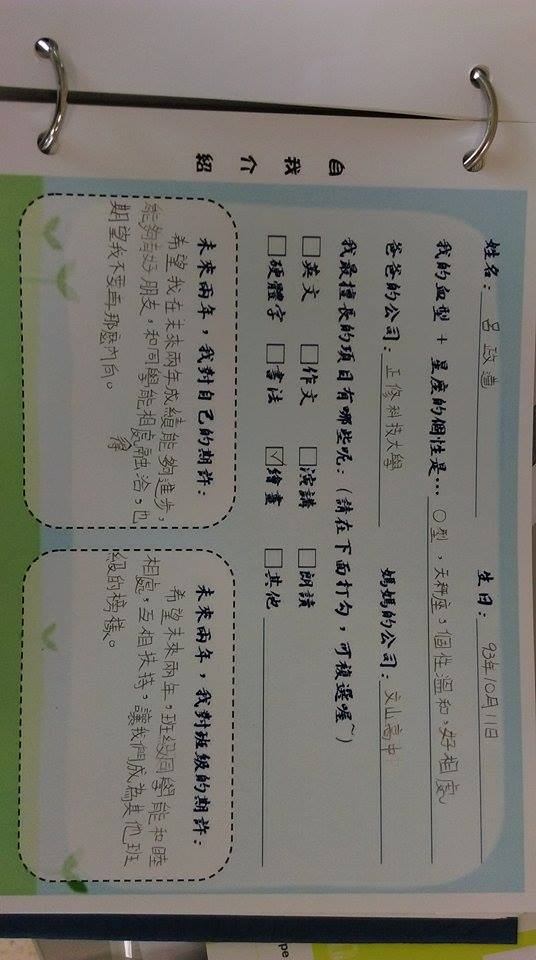 自我介紹
姓名：呂政逵 生日：93年10月11日
我的血型 + 星座的個性是… O型，天秤座，個性溫和，好相處
爸爸的公司：正修科技大學 媽媽的公司：文山高中
我最擅長的項目有哪些呢：(請在下面打勾，可複選喔~)
□英文 □作文 □演講 □朗讀
□硬體字 □書法 ☑繪畫 □其他
未來兩年，我對自己的期許：
希望我在未來兩年成績能夠進步，
能夠有好朋友，和同學能相處得融洽，也
期望我不要再那麼內向。
未來兩年，我對班級的期許：
希望未來兩年，班級同學能和睦
相處，互相扶持，讓我們成為其他班
級的榜樣。
pe